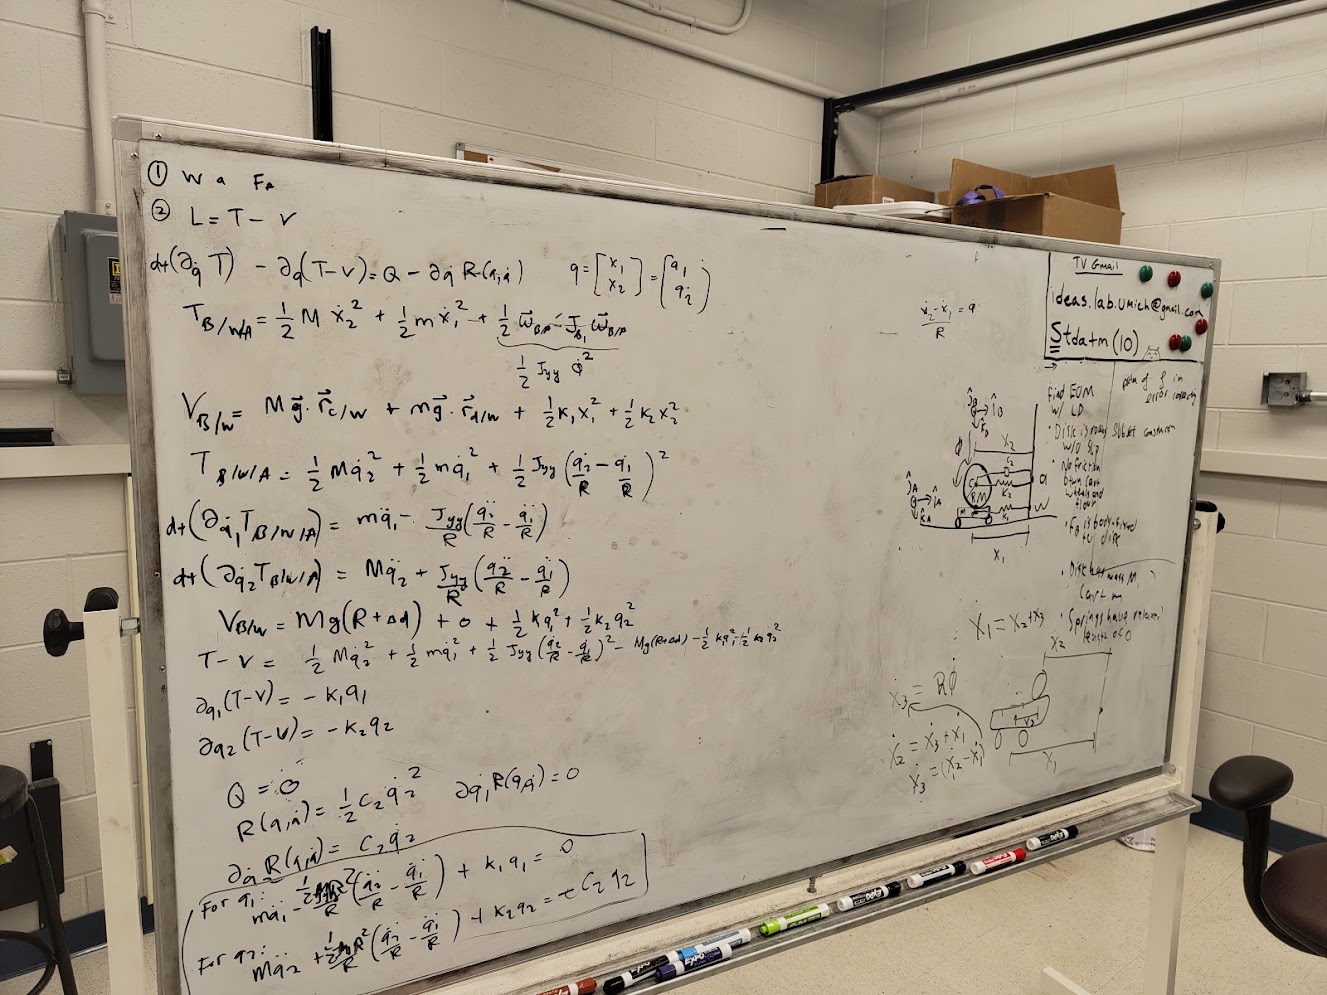 ① W a F_A
② L = T − V
dt(∂q̇ T) − ∂q(T−V) = Q − ∂q̇ R(q,q̇) q = [x₁ x₂] = [q₁ q₂]
T_B/W/A = 1/2 M ẋ₂² + 1/2 m ẋ₁² + 1/2 ω⃗_B/A · J_B₁ ω⃗_B/A
1/2 Jyy φ̇²
V_B/W = M g⃗ · r⃗_c/w + m g⃗ · r⃗_d/w + 1/2 k₁ x₁² + 1/2 k₂ x₂²
T_B/W/A = 1/2 M q̇₂² + 1/2 m q̇₁² + 1/2 Jyy (q̇₂/R − q̇₁/R)²
dt(∂q̇₁ T_B/W/A) = m q̈₁ − Jyy/R (q̈₂/R − q̈₁/R)
dt(∂q̇₂ T_B/W/A) = M q̈₂ + Jyy/R (q̈₂/R − q̈₁/R)
V_B/W = Mg(R + Δd) + 0 + 1/2 k q₁² + 1/2 k₂ q₂²
T − V = 1/2 M q̇₂² + 1/2 m q̇₁² + 1/2 Jyy (q̇₂/R − q̇₁/R)² − Mg(R+Δd) − 1/2 k q₁² − 1/2 k₂ q₂²
∂q₁(T−V) = −k₁q₁
∂q₂(T−V) = −k₂q₂
Q = 0
R(q,q̇) = 1/2 c₂ q̇₂² ∂q̇₁ R(q,q̇) = 0
∂q̇ R(q,q̇) = c₂ q̇₂
For q₁:
m q̈₁ − (q̈₂/R − q̈₁/R) + k₁q₁ = 0
For q₂:
M q̈₂ + (q̈₂/R − q̈₁/R) + k₂q₂ = − c₂ q̇₂
ẋ₂ − ẋ₁ / R = φ̇
TV Gmail
ideas.lab.umich@gmail.com
Stdatm (10)
Find EOM
w/ LD
• Disk is rolls
w/o slip
• No friction
btwn cart
wheels and
floor
• F_B is body-fixed
to disk
• Disk has mass M,
Cart m
• Springs have relaxed
length of 0
x₂
C₂
K₂
K₁
W
x₁
X₁ = X₂ + X₃
ẋ₃ = Rφ̇
ẋ₂ = ẋ₃ + ẋ₁
ẋ₃ = (ẋ₂ − ẋ₁)
x₂
x₁
EXPO
EXPO